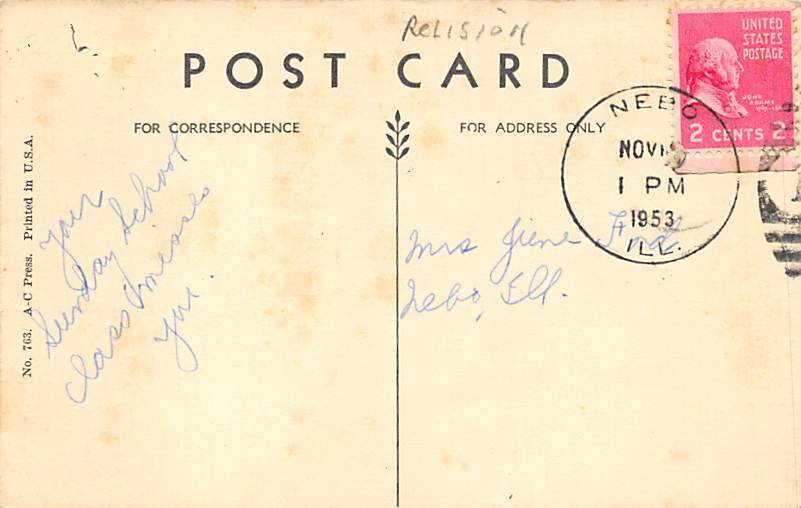 RELISION
POST CARD
FOR CORRESPONDENCE
FOR ADDRESS ONLY
UNITED
STATES
POSTAGE
JOHN
ADAMS
2 CENTS 2
NEBO
NOV
1 PM
1953
ILL.
No. 763. A-C Press. Printed in U.S.A.
Your
Sunday School
class misses
you.
Mrs Jiene
Nebo, Ill.